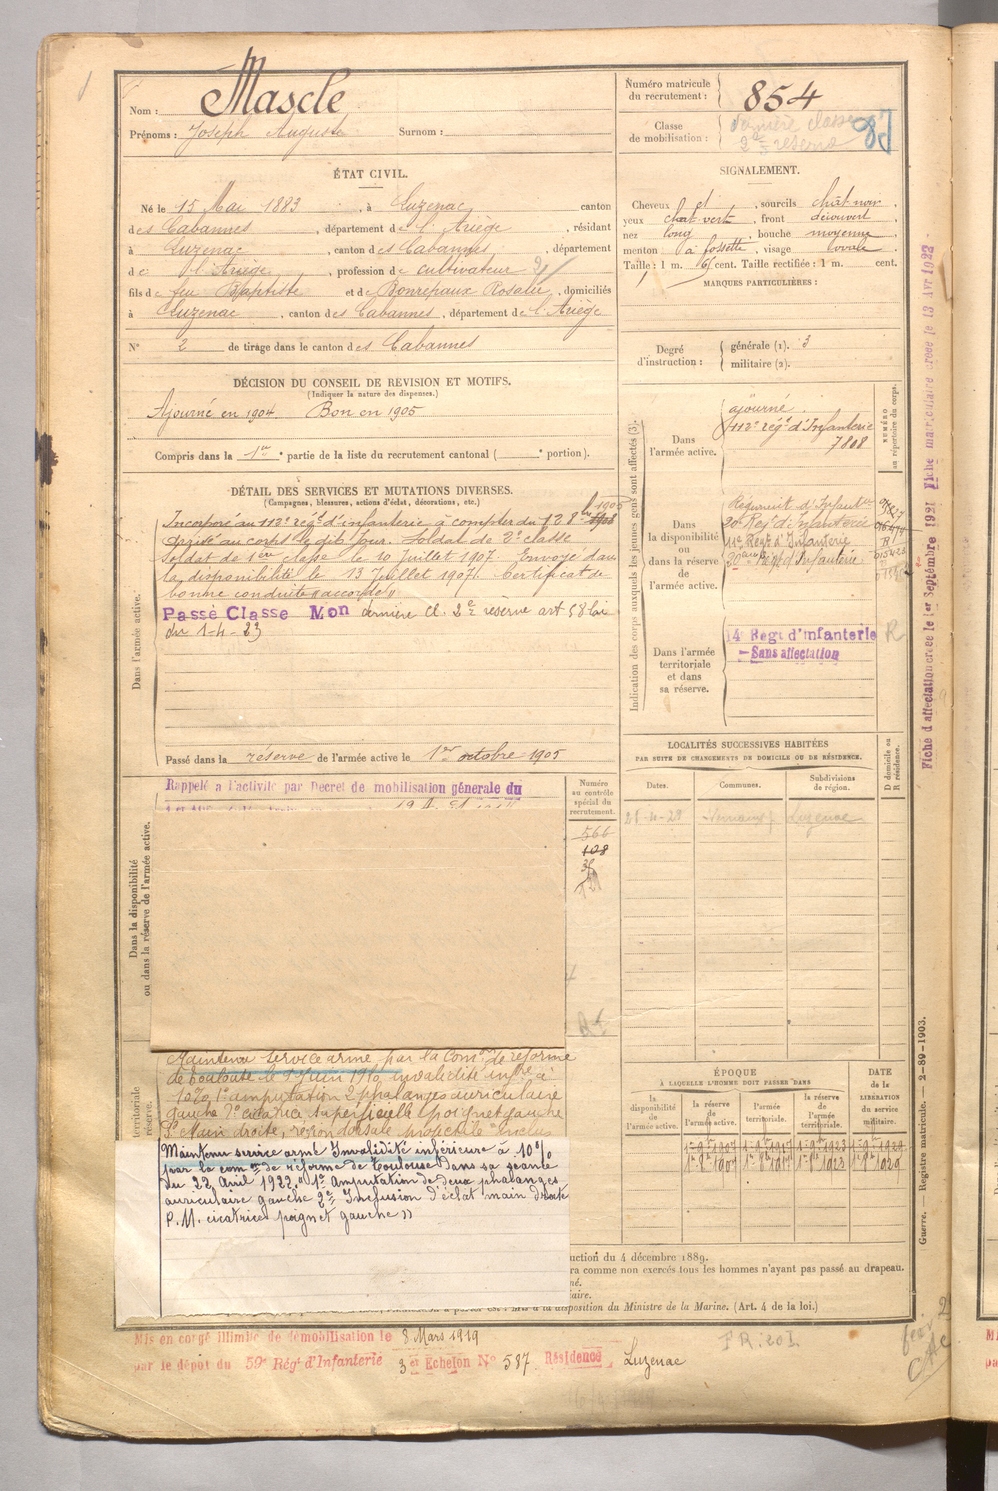 Nom : Mascle
Prénoms : Joseph Auguste Surnom :
Numéro matricule du recrutement : 854
Classe de mobilisation : dernière classe 2e réserve
ÉTAT CIVIL.
Né le 15 Mai 1883, à Luzenac canton
des Cabannes, département de l'Ariège, résidant
à Luzenac, canton des Cabannes, département
de l'Ariège, profession de cultivateur
fils de feu Baptiste et de Bonrepaux Rosalie, domiciliés
à Luzenac, canton des Cabannes, département de l'Ariège
N° 2 de tirage dans le canton des Cabannes
SIGNALEMENT.
Cheveux et, sourcils chât noir,
yeux chat vert, front découvert
nez long, bouche moyenne
menton à fossette, visage ovale
Taille : 1 m. 65 cent. Taille rectifiée : 1 m. cent.
MARQUES PARTICULIÈRES :
Degré d'instruction : générale (1). 3
militaire (2).
DÉCISION DU CONSEIL DE REVISION ET MOTIFS.
(Indiquer la nature des dispenses.)
Ajourné en 1904 Bon en 1905
Compris dans la 1re partie de la liste du recrutement cantonal ( e portion).
DÉTAIL DES SERVICES ET MUTATIONS DIVERSES.
(Campagnes, blessures, actions d'éclat, décorations, etc.)
Dans l'armée active.
Incorporé au 112e régt d'infanterie à compter du 8bre 1905
arrivé au corps le dit jour. Soldat de 2e classe
Soldat de 1ère classe le 10 Juillet 1907. Envoyé dans
la disponibilité le 13 Juillet 1907. Certificat de
bonne conduite « accordé »
Passé Classe Mon dernière Cl. 2e réserve art 58 loi
du 1-4-23
Passé dans la réserve de l'armée active le 1er octobre 1905
Indication des corps auxquels les jeunes gens sont affectés (3).
NUMÉRO au répertoire du corps.
Dans l'armée active.
ajourné.
112e régt d'Infanterie
7808
Dans la disponibilité ou dans la réserve de l'armée active.
Régiment d'Infanterie
20e Regt d'infanterie
11e Regt d'Infanterie
Régt d'Infanterie
Dans l'armée territoriale et dans sa réserve.
14e Régt d'infanterie
Sans affectation
R
Fiche d'affectation créée le 1er Septembre 1921 Fiche matriculaire créée le 13 Avr 1922
LOCALITÉS SUCCESSIVES HABITÉES
PAR SUITE DE CHANGEMENTS DE DOMICILE OU DE RÉSIDENCE.
Dates. Communes. Subdivisions de région. D domicile ou R résidence.
Luzenac
Dans la disponibilité ou dans la réserve de l'armée active.
Rappelé a l'activité par Decret de mobilisation générale du
Numéro au contrôle spécial du recrutement.
566
108
Maintenu service armé par la Comon de réforme
de Toulouse le Juin 1919, invalidité infre à
10% 1° amputation 2 phalanges auriculaire
gauche 2° cicatrice superficielle poignet gauche
3° Main droite, région dorsale projectile inclus
territoriale
réserve.
Maintenu service armé Invalidité inférieure à 10%
par la comon de réforme de Toulouse dans sa séance
du 22 Avril 1922. 1° Amputation de deux phalanges
auriculaire gauche 2° Inclusion d'éclat main droite
P.M. cicatrices poignet gauche »
ÉPOQUE
À LAQUELLE L'HOMME DOIT PASSER DANS
la disponibilité de l'armée active.
la réserve de l'armée active.
l'armée territoriale.
la réserve de l'armée territoriale.
DATE de la LIBÉRATION du service militaire.
uction du 4 décembre 1889.
ra comme non exercés tous les hommes n'ayant pas passé au drapeau.
né.
iaire.
disposition du Ministre de la Marine. (Art. 4 de la loi.)
Guerre. — Registre matricule. — 2-89-1903.
Mis en congé illimité de démobilisation le 8 Mars 1919
par le dépôt du 59e Régt d'Infanterie 3e Echelon N° 587 Résidence Luzenac